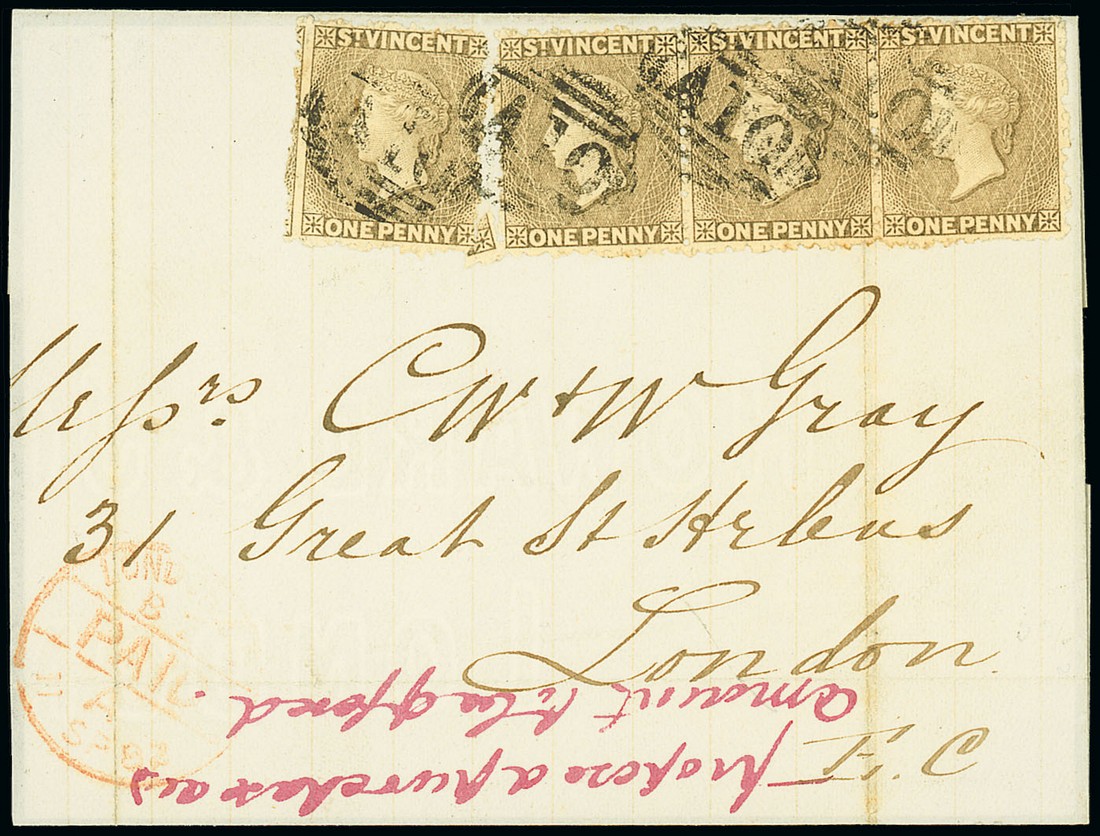 ST VINCENT ST VINCENT ST VINCENT ST VINCENT
A10
ONE PENNY ONE PENNY ONE PENNY ONE PENNY
Messrs. C W & W Gray
31 Great St Helens
London
E.C
PAID
amount to be